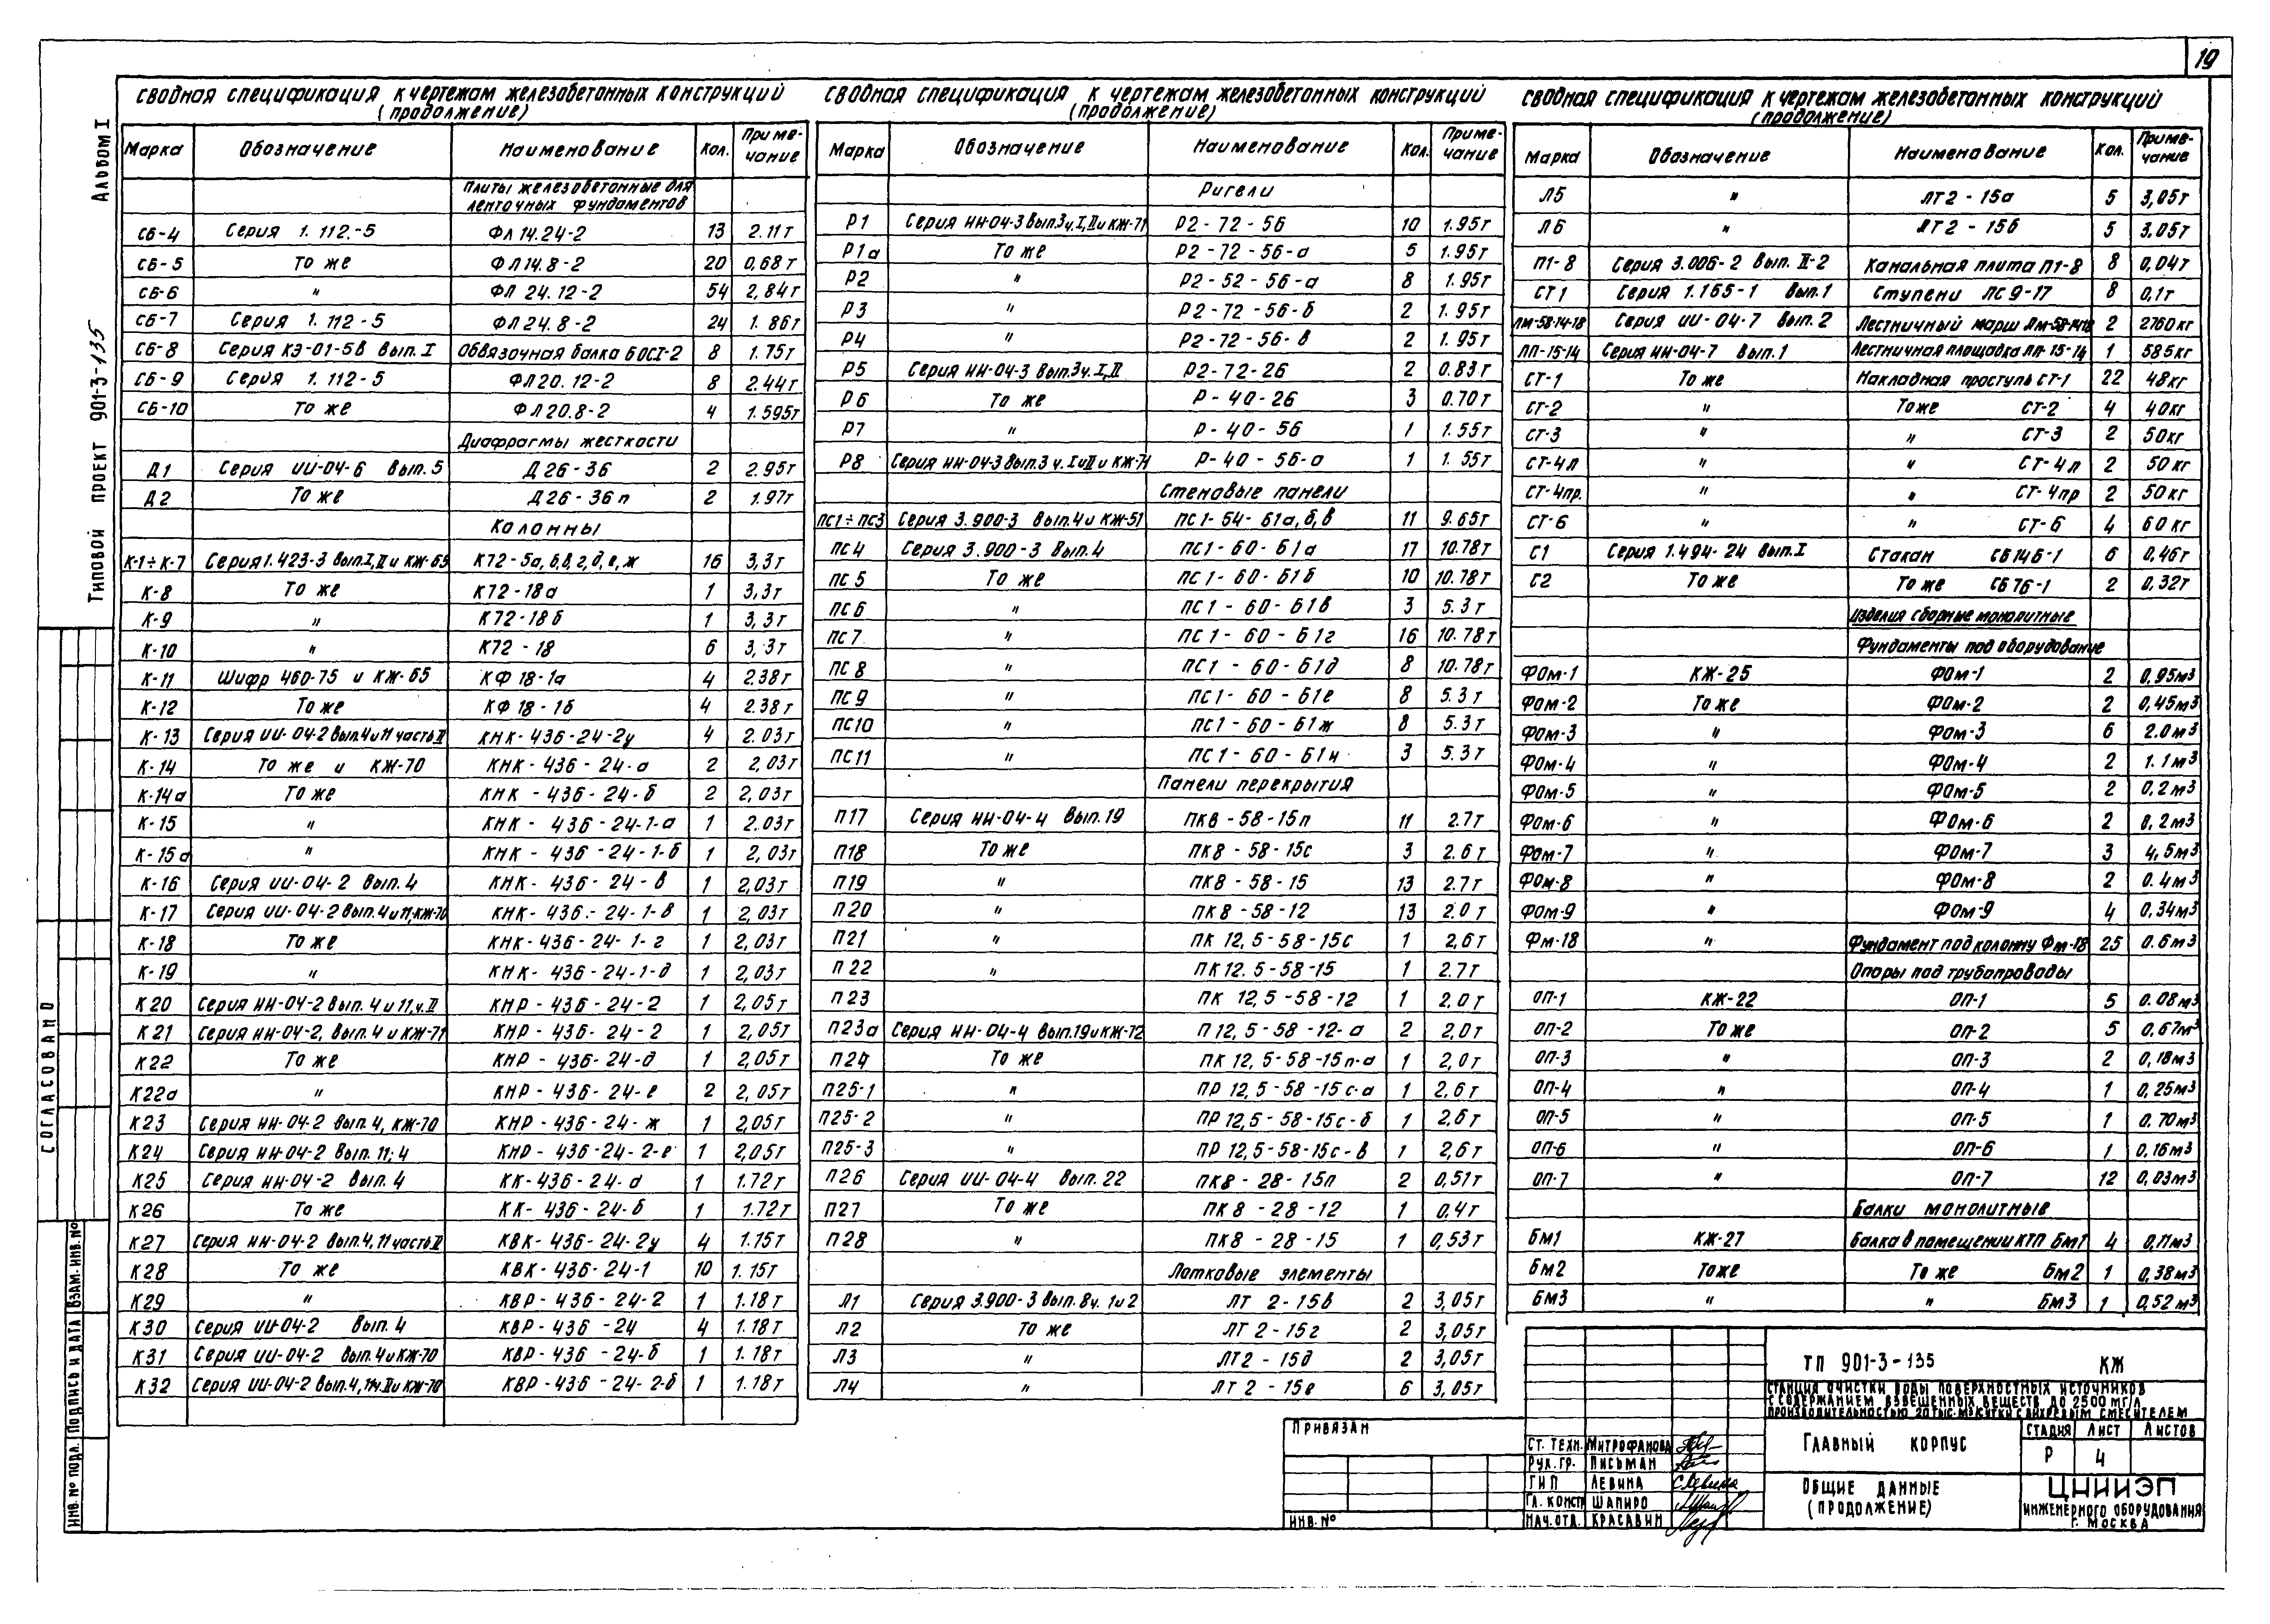 19
Альбом I
Типовой проект 901-3-135
Согласовано
Инв. № подл. Подпись и дата Взам. инв. №
Сводная спецификация к чертежам железобетонных конструкций
(продолжение)
Марка Обозначение Наименование Кол. Приме-
чание
Плиты железобетонные для
ленточных фундаментов
СБ-4 Серия 1.112.-5 ФЛ 14.24-2 13 2.11т
СБ-5 То же ФЛ14.8-2 20 0,68т
СБ-6 " ФЛ 24.12-2 54 2,84т
СБ-7 Серия 1.112-5 ФЛ24.8-2 24 1.86т
СБ-8 Серия КЭ-01-58 вып. I Обвязочная балка БОСI-2 8 1.75т
СБ-9 Серия 1.112-5 ФЛ20.12-2 8 2.44т
СБ-10 То же ФЛ20.8-2 4 1.595т
Диафрагмы жесткости
Д1 Серия ИИ-04-6 вып.5 Д26-36 2 2.95т
Д2 То же Д26-36п 2 1.97т
Колонны
К-1÷К-7 Серия 1.423-3 вып.I,II и КЖ-65 К72-5а,б,в,г,д,е,ж 16 3,3т
К-8 То же К72-18а 1 3,3т
К-9 " К72-18б 1 3,3т
К-10 " К72-18 6 3,3т
К-11 Шифр 460-75 и КЖ-65 КФ18-1а 4 2.38т
К-12 То же КФ18-1б 4 2.38т
К-13 Серия ИИ-04-2 вып.4 и 11 часть II КНК-436-24-2у 4 2.03т
К-14 То же и КЖ-70 КНК-436-24-а 2 2,03т
К-14а То же КНК-436-24-б 2 2,03т
К-15 " КНК-436-24-1-а 1 2.03т
К-15а " КНК-436-24-1-б 1 2,03т
К-16 Серия ИИ-04-2 вып.4 КНК-436-24-в 1 2,03т
К-17 Серия ИИ-04-2 вып.4 и 11, КЖ-70 КНК-436.-24-1-в 1 2,03т
К-18 То же КНК-436-24-1-г 1 2,03т
К-19 " КНК-436-24-1-д 1 2,03т
К20 Серия ИИ-04-2 вып.4 и 11,ч.II КНР-436-24-2 1 2,05т
К21 Серия ИИ-04-2, вып.4 и КЖ-71 КНР-436-24-2 1 2,05т
К22 То же КНР-436-24-д 1 2,05т
К22а " КНР-436-24-е 2 2,05т
К23 Серия ИИ-04-2 вып.4, КЖ-70 КНР-436-24-ж 1 2,05т
К24 Серия ИИ-04-2 вып.11;4 КНР-436-24-2-е 1 2,05т
К25 Серия ИИ-04-2 вып.4 КК-436-24-а 1 1.72т
К26 То же КК-436-24-б 1 1.72т
К27 Серия ИИ-04-2 вып.4,11 часть II КВК-436-24-2у 4 1.15т
К28 То же КВК-436-24-1 10 1.15т
К29 " КВР-436-24-2 1 1.18т
К30 Серия ИИ-04-2 вып.4 КВР-436-24 4 1.18т
К31 Серия ИИ-04-2 вып.4 и КЖ-70 КВР-436-24-б 1 1.18т
К32 Серия ИИ-04-2 вып.4,11ч.II и КЖ-70 КВР-436-24-2-б 1 1.18т
Сводная спецификация к чертежам железобетонных конструкций
(продолжение)
Марка Обозначение Наименование Кол. Приме-
чание
Ригели
Р1 Серия ИИ-04-3 вып.3ч.I,II и КЖ-71 Р2-72-56 10 1.95т
Р1а То же Р2-72-56-а 5 1.95т
Р2 " Р2-52-56-а 8 1.95т
Р3 " Р2-72-56-б 2 1.95т
Р4 " Р2-72-56-в 2 1.95т
Р5 Серия ИИ-04-3 вып.3ч.I,II Р2-72-26 2 0.83т
Р6 То же Р-40-26 3 0.70т
Р7 " Р-40-56 1 1.55т
Р8 Серия ИИ-04-3 вып.3 ч.I и II и КЖ-71 Р-40-56-а 1 1.55т
Стеновые панели
ПС1÷ПС3 Серия 3.900-3 вып.4 и КЖ-51 ПС1-54-61а,б,в 11 9.65т
ПС4 Серия 3.900-3 вып.4 ПС1-60-61а 17 10.78т
ПС5 То же ПС1-60-61б 10 10.78т
ПС6 " ПС1-60-61в 3 5.3т
ПС7 " ПС1-60-61г 16 10.78т
ПС8 " ПС1-60-61д 8 10.78т
ПС9 " ПС1-60-61е 8 5.3т
ПС10 " ПС1-60-61ж 8 5.3т
ПС11 " ПС1-60-61и 3 5.3т
Панели перекрытия
П17 Серия ИИ-04-4 вып.19 ПК8-58-15п 11 2.7т
П18 То же ПК8-58-15с 3 2.6т
П19 " ПК8-58-15 13 2.7т
П20 " ПК8-58-12 13 2.0т
П21 " ПК 12,5-58-15с 1 2,6т
П22 " ПК 12.5-58-15 1 2.7т
П23 ПК 12,5-58-12 1 2.0т
П23а Серия ИИ-04-4 вып.19 и КЖ-72 П12,5-58-12-а 2 2,0т
П24 То же ПК 12,5-58-15п-а 1 2,0т
П25-1 " ПР 12,5-58-15с-а 1 2,6т
П25-2 " ПР 12,5-58-15с-б 1 2,6т
П25-3 " ПР 12,5-58-15с-в 1 2,6т
П26 Серия ИИ-04-4 вып.22 ПК8-28-15п 2 0,51т
П27 То же ПК8-28-12 1 0.4т
П28 " ПК8-28-15 1 0,53т
Лотковые элементы
Л1 Серия 3.900-3 вып.8ч.1и2 ЛТ 2-15в 2 3,05т
Л2 То же ЛТ 2-15г 2 3,05т
Л3 " ЛТ2-15д 2 3,05т
Л4 " ЛТ 2-15е 6 3,05т
Сводная спецификация к чертежам железобетонных конструкций
(продолжение)
Марка Обозначение Наименование Кол. Приме-
чание
Л5 " ЛТ2-15а 5 3,05т
Л6 " ЛТ2-15б 5 3.05т
П1-8 Серия 3.006-2 вып. II-2 Канальная плита П1-8 8 0,04т
СТ1 Серия 1.155-1 вып.1 Ступени ЛС9-17 8 0,1т
ЛМ-58-14-18 Серия ИИ-04-7 вып.2 Лестничный марш ЛМ-58-14-18 2 2760кг
ЛП-15-14 Серия ИИ-04-7 вып.1 Лестничная площадка ЛП-15-14 1 585кг
СТ-1 То же Накладная проступь СТ-1 22 48кг
СТ-2 " Тоже СТ-2 4 40кг
СТ-3 " " СТ-3 2 50кг
СТ-4л " " СТ-4л 2 50кг
СТ-4пр. " " СТ-4пр 2 50кг
СТ-6 " " СТ-6 4 60кг
С1 Серия 1.494-24 вып.I Стакан СБ14Б-1 6 0,46т
С2 То же То же СБ7Б-1 2 0,32т
Изделия сборные монолитные
Фундаменты под оборудование
ФОм-1 КЖ-25 ФОм-1 2 0.95м3
ФОм-2 То же ФОм-2 2 0,45м3
ФОм-3 " ФОм-3 6 2.0м3
ФОм-4 " ФОм-4 2 1.1м3
ФОм-5 " ФОм-5 2 0.2м3
ФОм-6 " ФОм-6 2 0,2м3
ФОм-7 " ФОм-7 3 4,5м3
ФОм-8 " ФОм-8 2 0.4м3
ФОм-9 " ФОм-9 4 0,34м3
Фм-18 " Фундамент под колонну Фм-18 25 0.6м3
Опоры под трубопроводы
ОП-1 КЖ-22 ОП-1 5 0.08м3
ОП-2 То же ОП-2 5 0.67м3
ОП-3 " ОП-3 2 0,18м3
ОП-4 " ОП-4 1 0,25м3
ОП-5 " ОП-5 1 0.70м3
ОП-6 " ОП-6 1 0,16м3
ОП-7 " ОП-7 12 0,03м3
Балки монолитные
Бм1 КЖ-27 Балка в помещении КТП Бм1 4 0,11м3
Бм2 Тоже То же Бм2 1 0,38м3
Бм3 " " Бм3 1 0,52м3
Привязан
Инв. №
ТП 901-3-135 КЖ
Станция очистки воды поверхностных источников
с содержанием взвешенных веществ до 2500 мг/л
производительностью 20 тыс. м3/сутки с вихревым смесителем
Ст. техн. Митрофанова
Рук. гр. Письман
ГИП Левина
Гл. констр Шапиро
Нач. отд. Красавин
Главный корпус
Стадия Лист Листов
Р 4
Общие данные
(продолжение)
ЦНИИЭП
инженерного оборудования
г. Москва